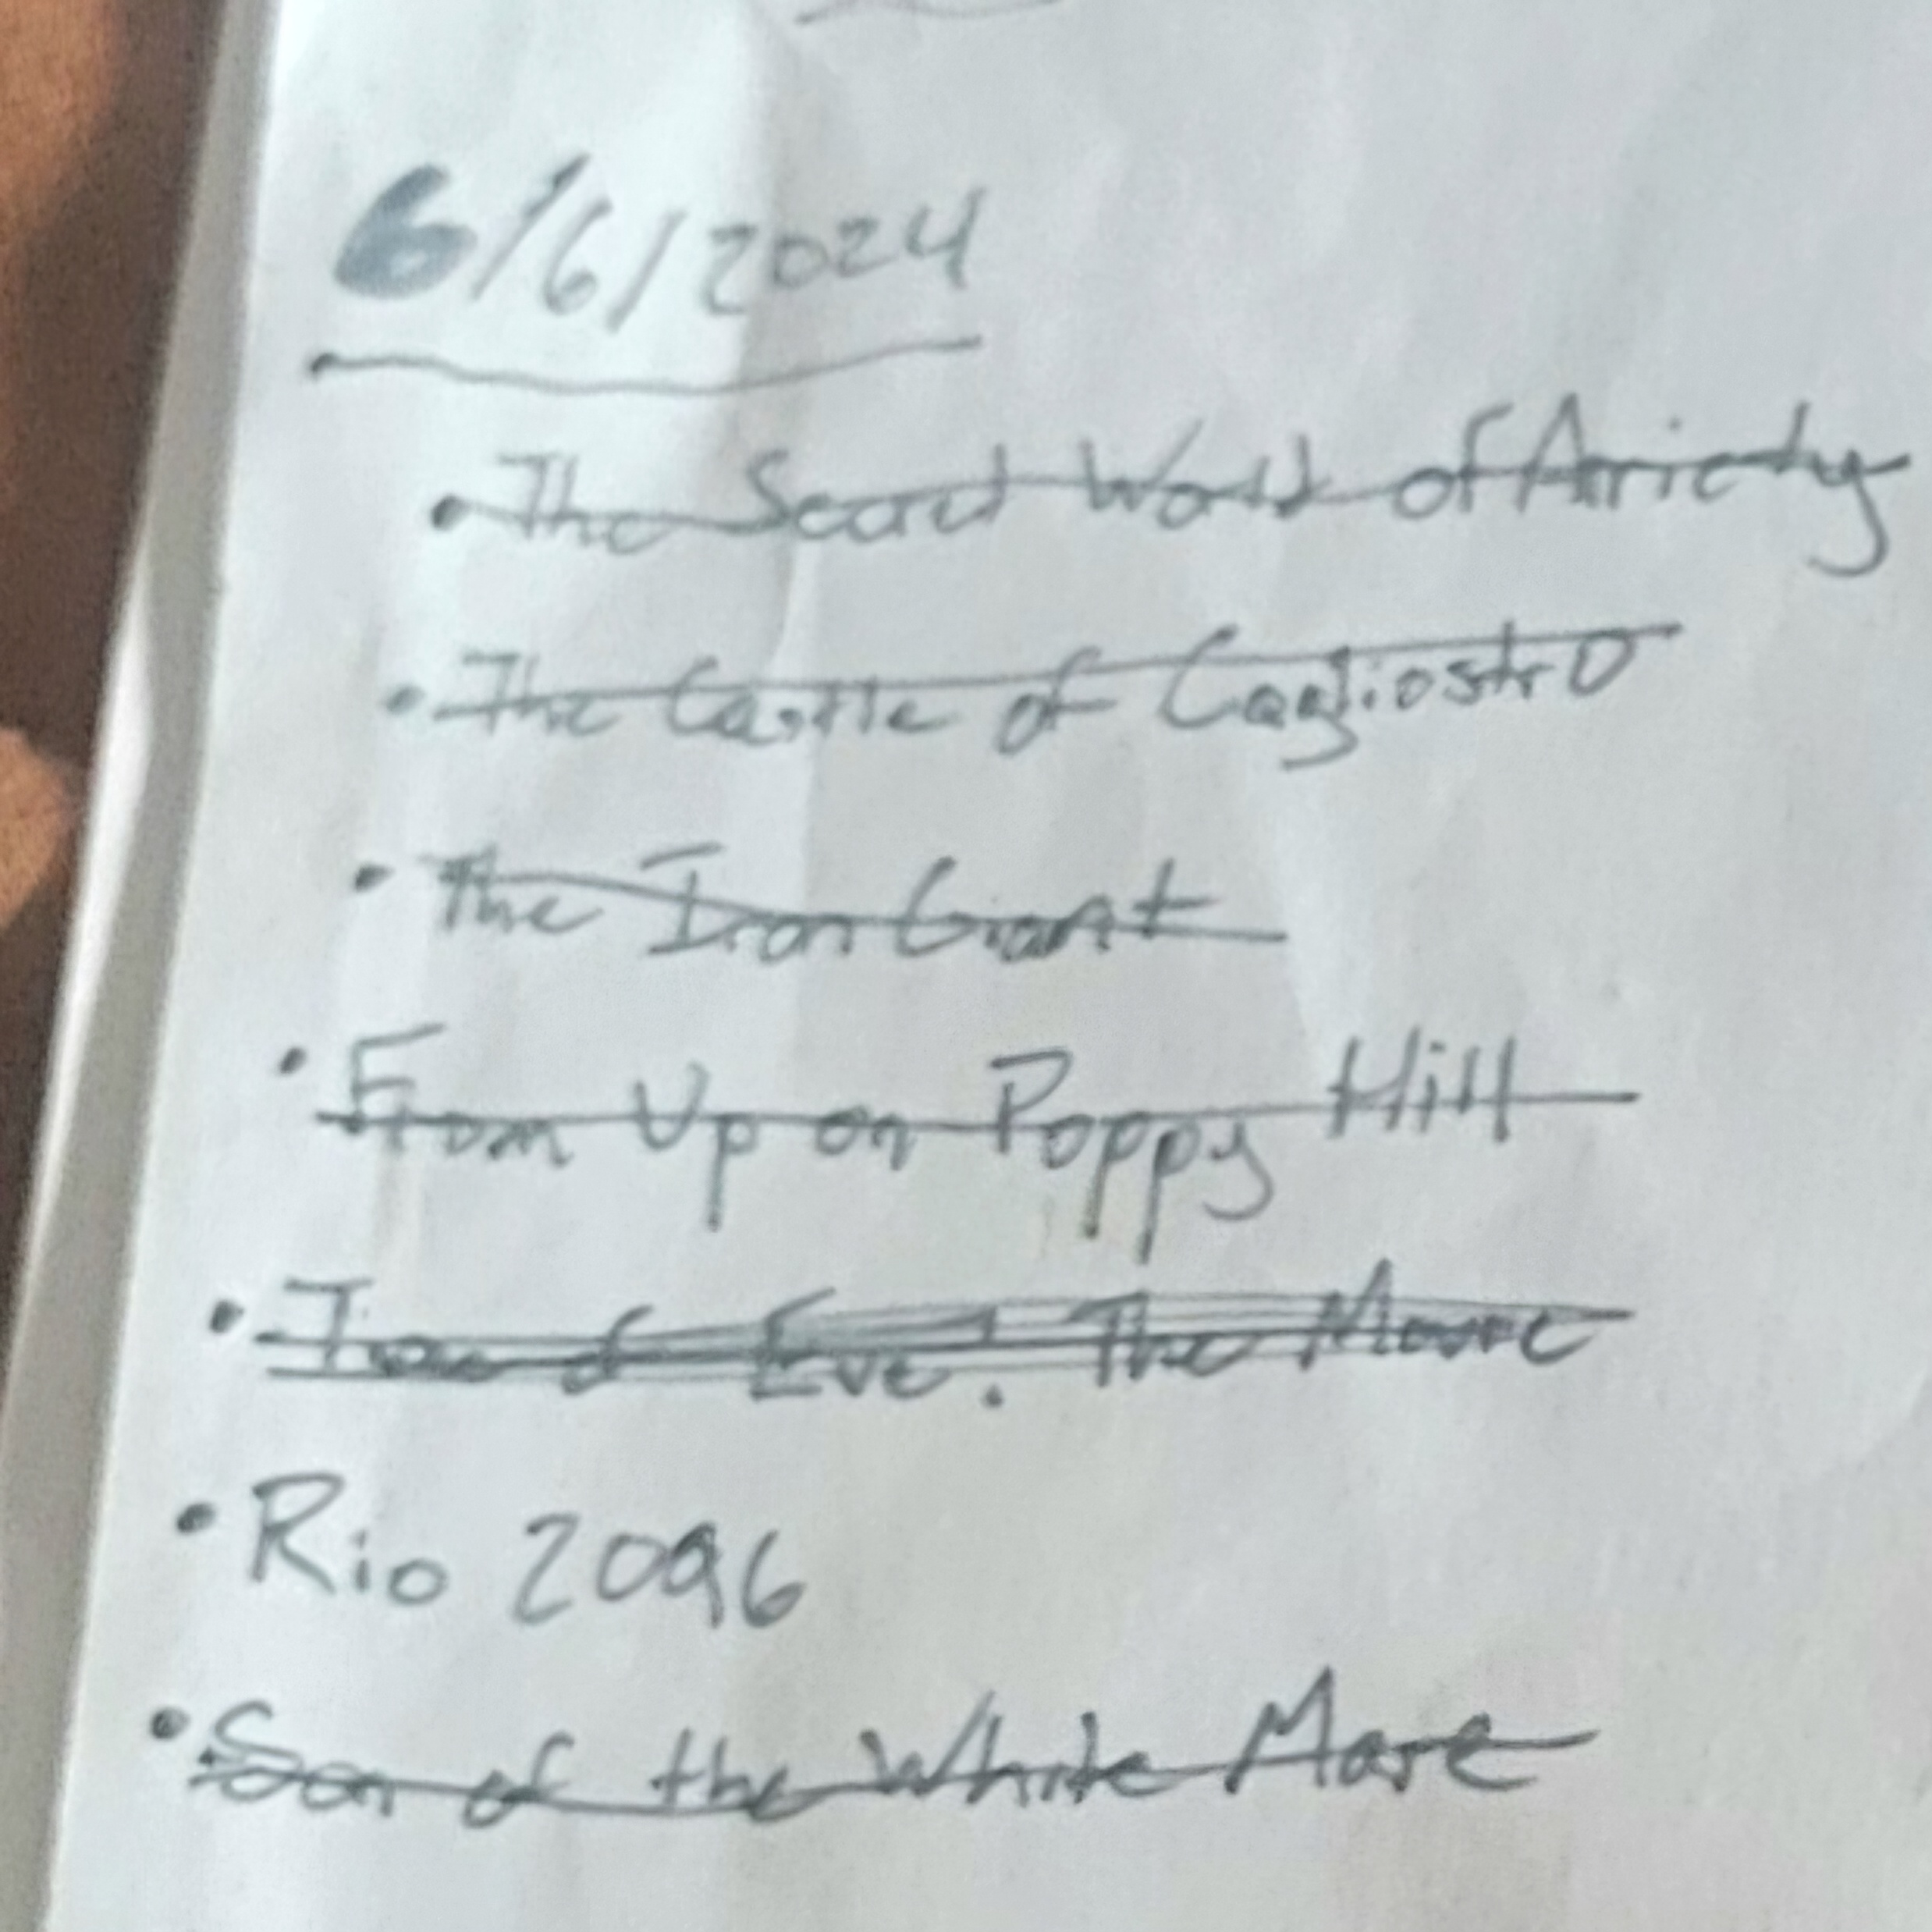 6/6/2024
• The Secret World of Arrietty
• The Castle of Cagliostro
• The Iron Giant
• From Up on Poppy Hill
• Time of Eve: The Movie
• Rio 2096
• Son of the White Mare